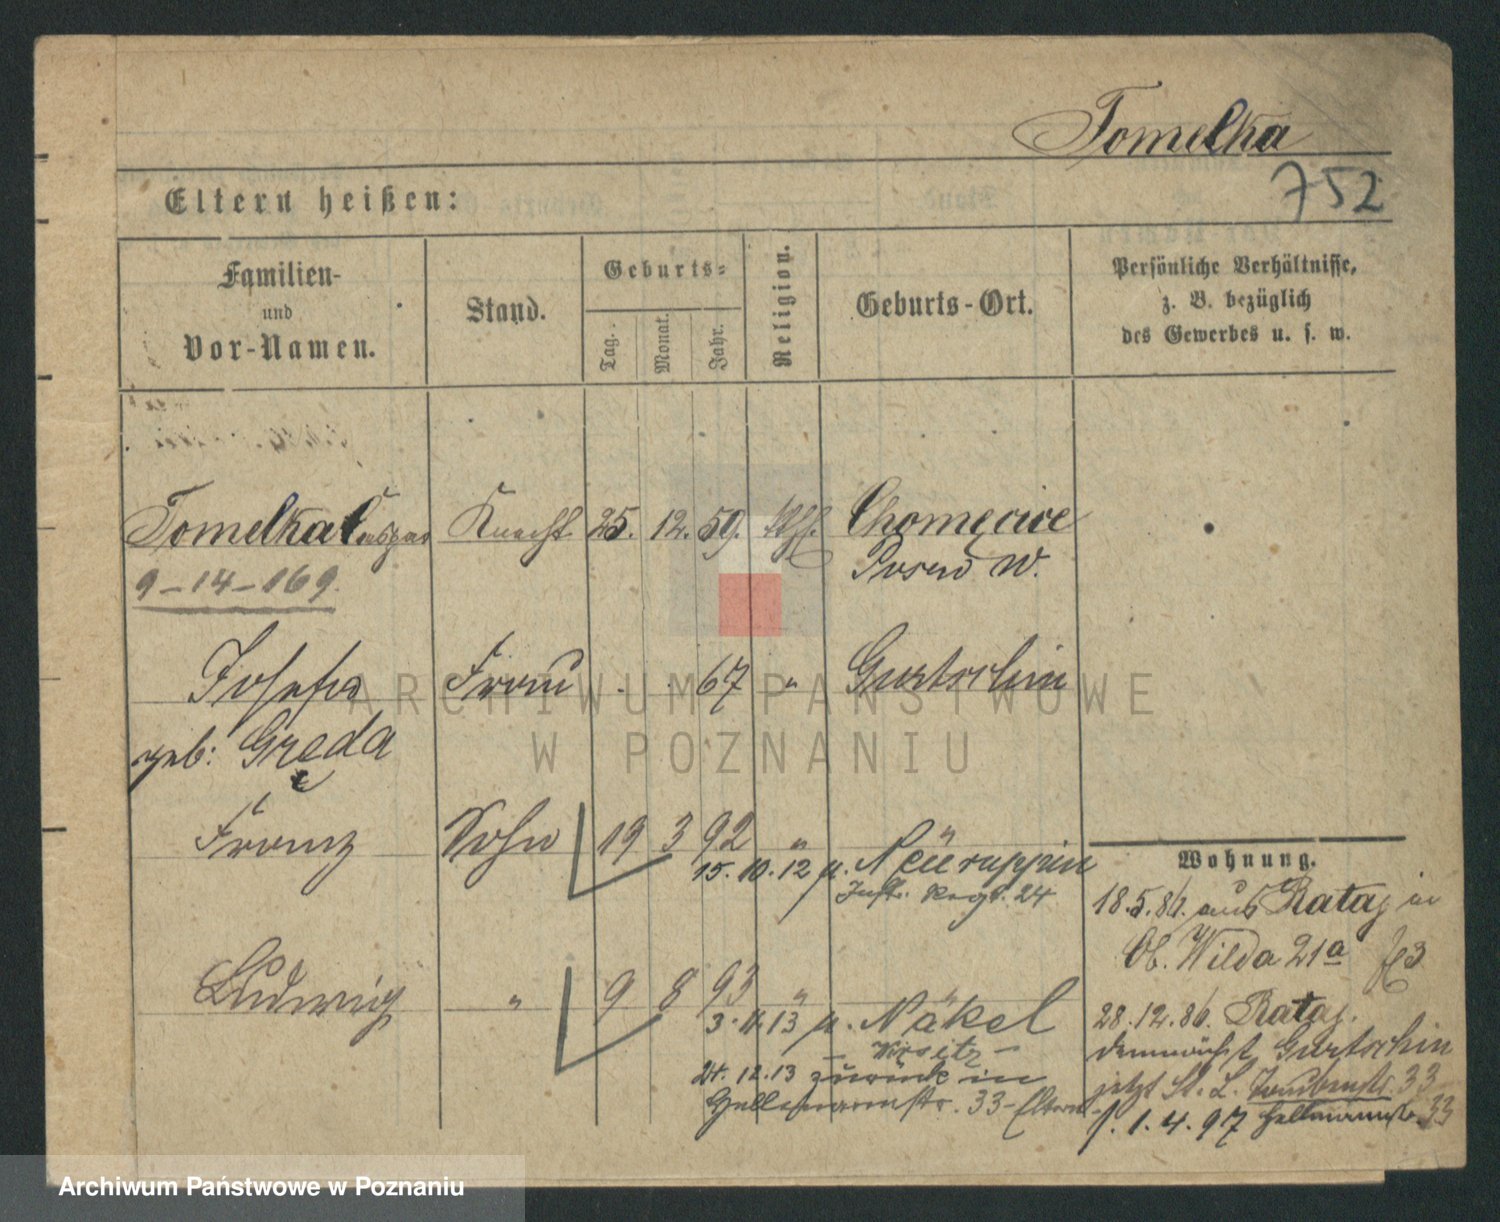 Tomelka
752
Eltern heißen:
Familien-
und
Vor-Namen.
Stand.
Geburts-
Tag.
Monat.
Jahr.
Religion.
Geburts-Ort.
Persönliche Verhältnisse,
z. B. bezüglich
des Gewerbes u. s. w.
Tomelka Caspar Knecht 25. 12. 59. Chomęcice
9-14-169. Posen W.
Josefa Frau 67 " Gurtschin
geb: Gręda
Franz Sohn 19 3 92 " "
15. 10. 12 n. Neuruppin
Inft. Regt. 24
Ludwig " 9 8 93 " "
3. 11. 13 n. Nakel
Wirsitz
24. 12. 13 zurück in
33 - Eltern
Wohnung.
18.5.86. aus Rataj in
Ob. Wilda 21a
28.12.86. Rataj.
demnächst Gurtschin
jetzt St. L. 33
1. 4. 97 33
ARCHIWUM PAŃSTWOWE
W POZNANIU
Archiwum Państwowe w Poznaniu